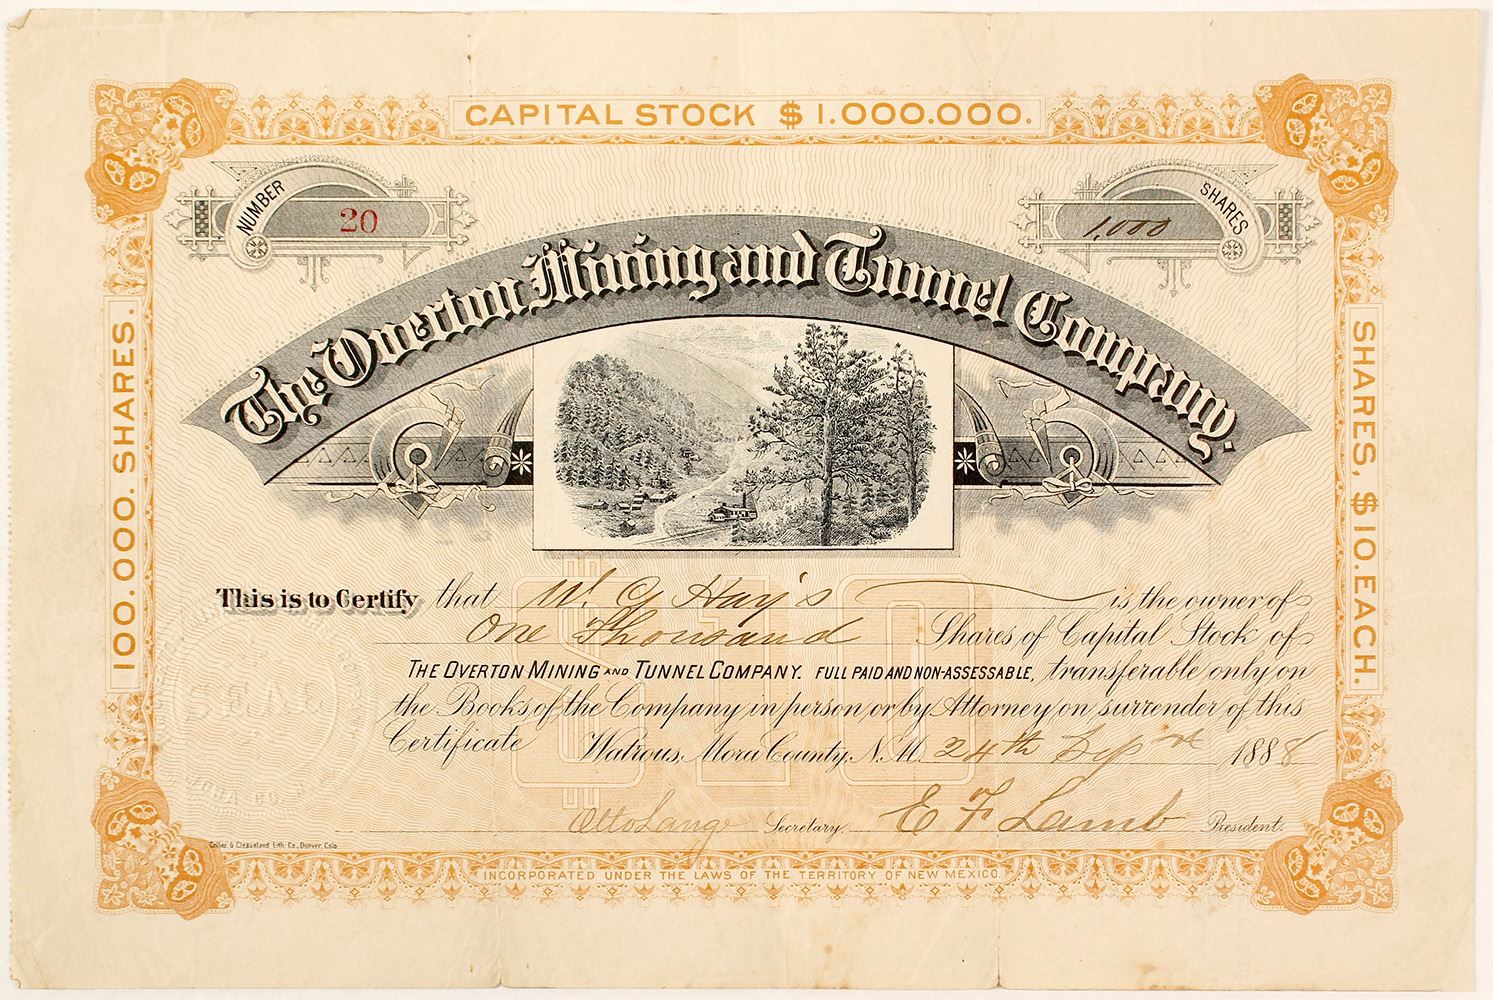 CAPITAL STOCK $1.000.000.
NUMBER 20
1,000 SHARES
The Overton Mining and Tunnel Company.
100.000. SHARES.
SHARES, $10. EACH.
This is to Certify that W. G Hay's is the owner of
One Thousand Shares of Capital Stock of
THE OVERTON MINING AND TUNNEL COMPANY. FULL PAID AND NON-ASSESSABLE, transferable only on
the Books of the Company in person or by Attorney on surrender of this
Certificate Watrous, Mora County, N.M. 24th 1888
$10
SEAL
MORA CO.
Otto Lange Secretary. E F Lamb President.
Collier & Cleaveland Lith. Co., Denver, Colo.
INCORPORATED UNDER THE LAWS OF THE TERRITORY OF NEW MEXICO.